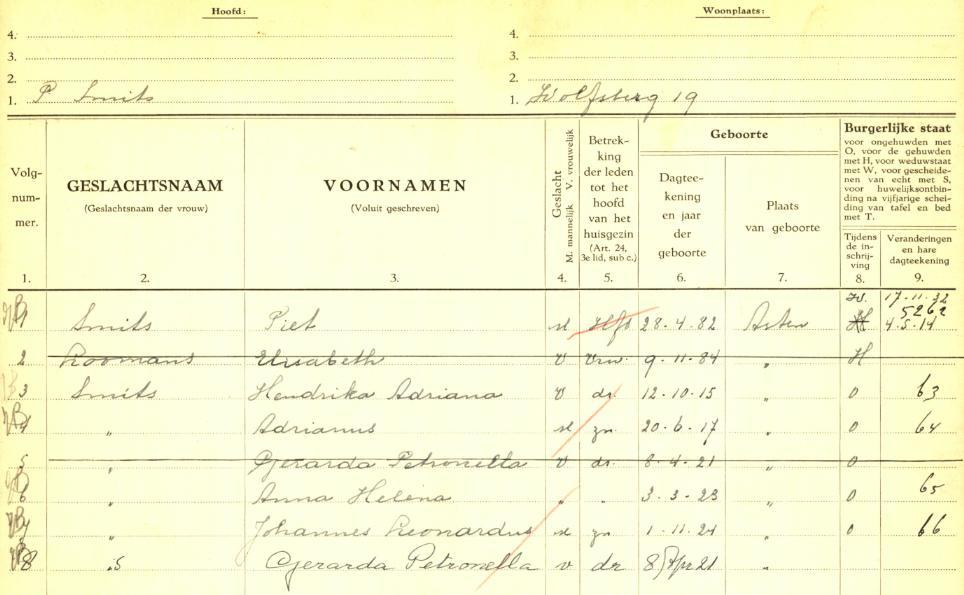 Hoofd: Woonplaats:
4. 4.
3. 3.
2. 2.
1. P Smits 1. Wolfsberg 19
Volg-num-mer. GESLACHTSNAAM (Geslachtsnaam der vrouw) VOORNAMEN (Voluit geschreven) Geslacht M. mannelijk V. vrouwelijk Betrek-king der leden tot het hoofd van het huisgezin (Art. 24, 3e lid, sub c.) Geboorte Dagtee-kening en jaar der geboorte Plaats van geboorte Burgerlijke staat voor ongehuwden met O, voor de gehuwden met H, voor weduwstaat met W, voor gescheide-nen van echt met S, voor huwelijksontbin-ding na vijfjarige schei-ding van tafel en bed met T. Tijdens de in-schrij-ving Veranderingen en hare dagteekening
1. 2. 3. 4. 5. 6. 7. 8. 9.
W. 17-11-32
5262
1 Smits Piet M Hfd 28-4-82 Asten H 4-5-14
2 Koomans Elisabeth V vrw. 9-11-84 " H
3 Smits Hendrika Adriana V dr. 12-10-15 " O 63
4 " Adrianus M zn. 20-6-17 " O 64
5 " Gerarda Petronella V dr. 8-4-21 " O
6 " Anna Helena " " 3-3-23 " O 65
7 " Johannes Leonardus M zn. 1-11-24 " O 66
8 " S Gerarda Petronella V dr 8 Apr 21 "